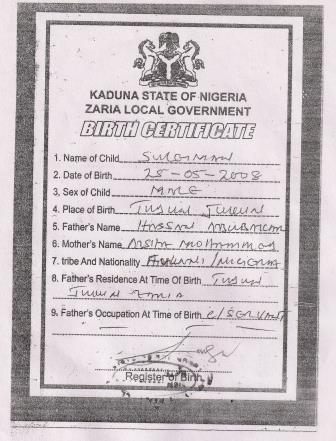 KADUNA STATE OF NIGERIA
ZARIA LOCAL GOVERNMENT
BIRTH CERTIFICATE
1. Name of Child SULAIMAN
2. Date of Birth 25-05-2008
3. Sex of Child MALE
4. Place of Birth TUDUN JUKUN
5. Father's Name HASSAN ABUBAKAR
6. Mother's Name MOHAMMED
7. tribe And Nationality FULANI / NIGERIA
8. Father's Residence At Time Of Birth TUDUN
JUKUN ZARIA
9. Father's Occupation At Time of Birth C/SERVANT
Register of Birth